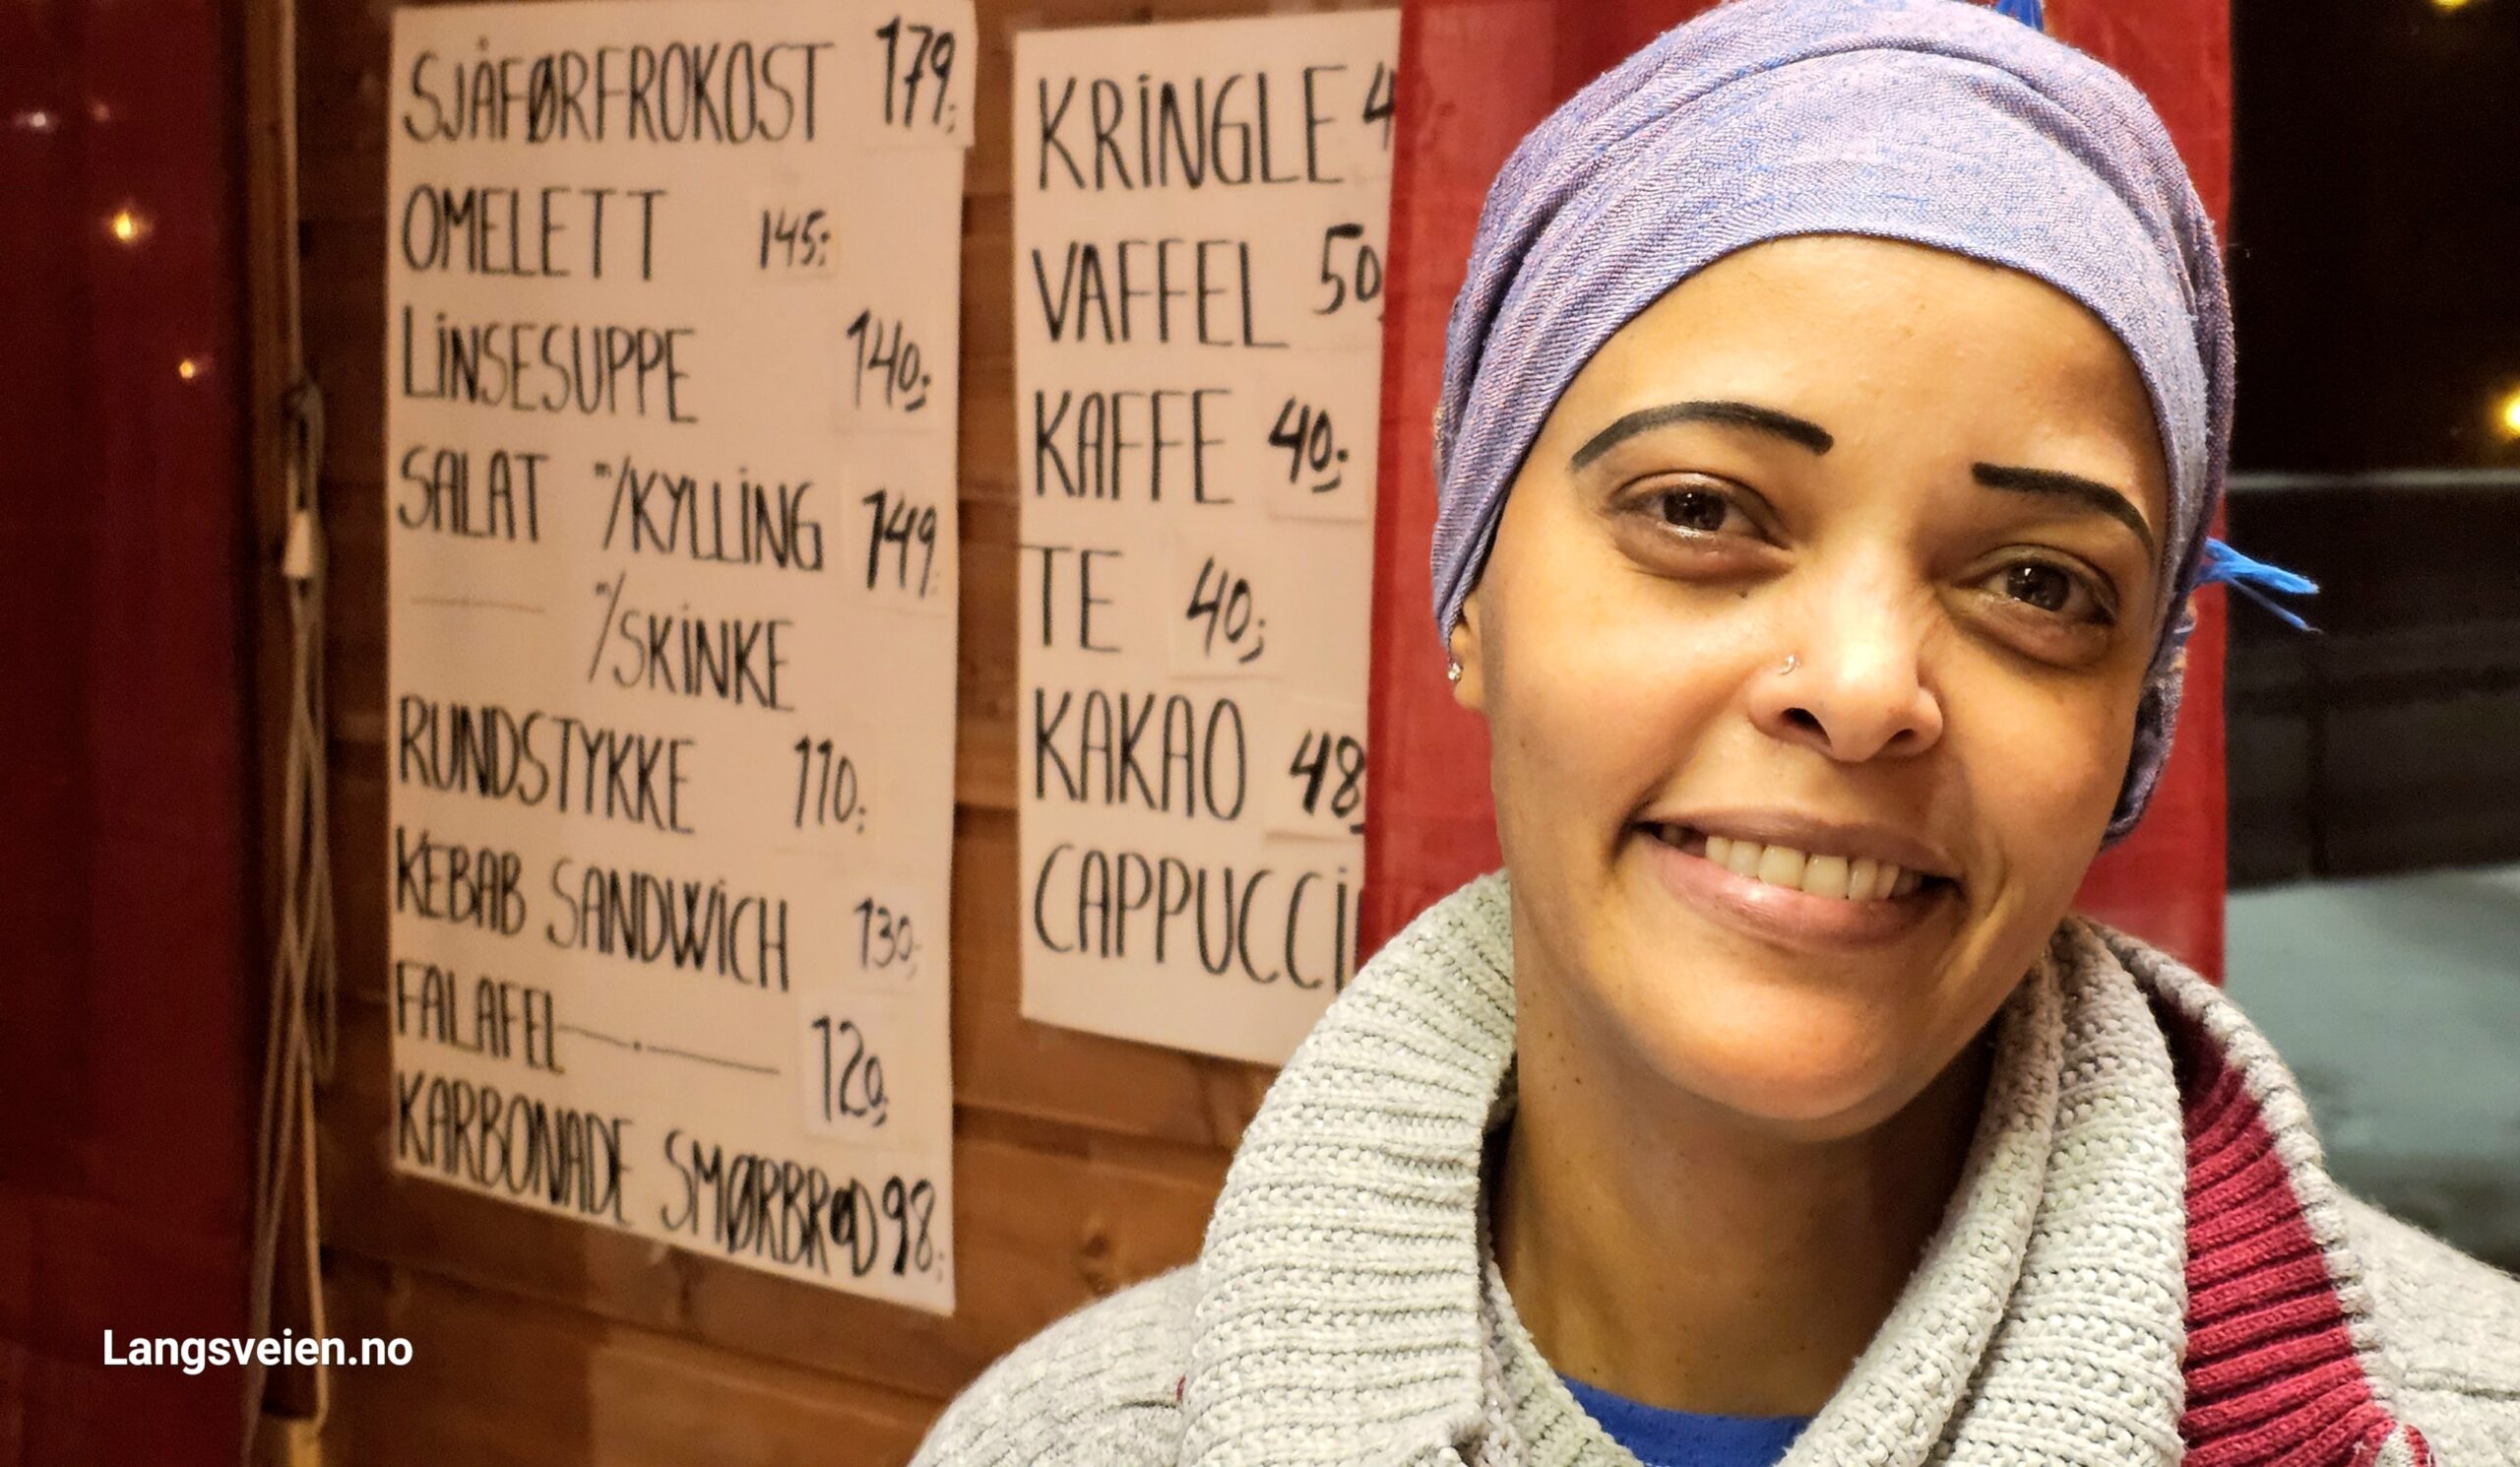 SJÅFØRFROKOST 179,-
OMELETT 145,-
LINSESUPPE 140,-
SALAT m/KYLLING 149,-
m/SKINKE
RUNDSTYKKE 110,-
KEBAB SANDWICH 130,-
FALAFEL 120,-
KARBONADE SMØRBRØD 98,-
KRINGLE
VAFFEL 50,
KAFFE 40,-
TE 40,-
KAKAO 48,
CAPPUCCI
Langsveien.no